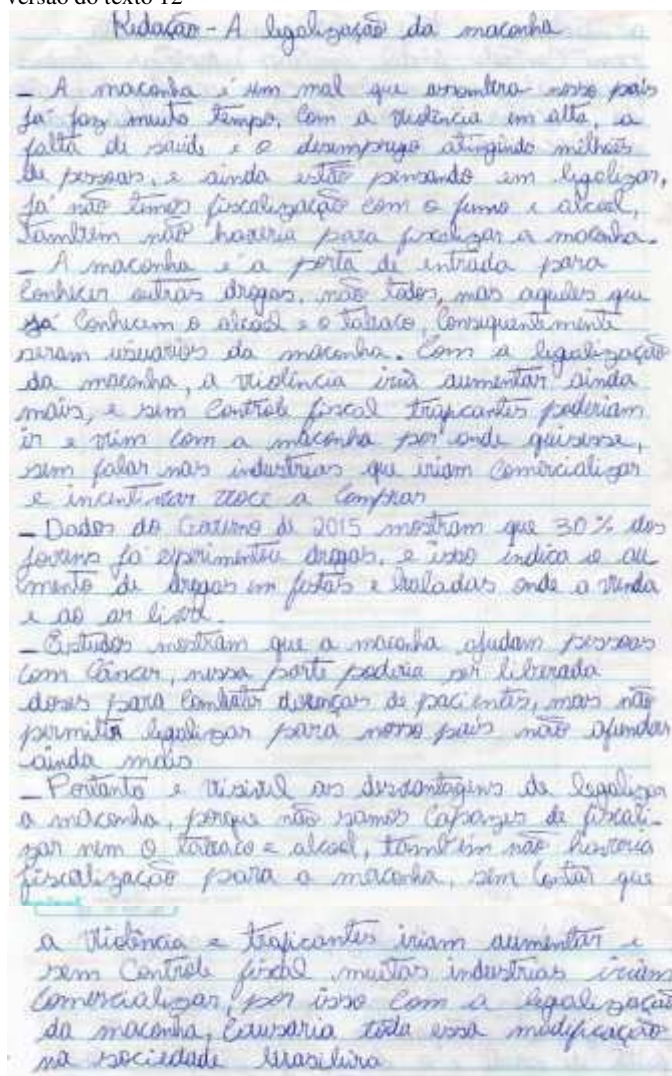 versão do texto 12
Redação - A legalização da maconha
- A maconha é um mal que assombra nosso país
já faz muito tempo, com a violência em alta, a
falta de saúde e o desemprego atingindo milhões
de pessoas, e ainda estão pensando em legalizar,
já não temos fiscalização com o fumo e alcool,
também não haveria para fiscalizar a maconha.
- A maconha é a porta de entrada para
conhecer outras drogas, não todos, mas aqueles que
já conhecem o alcool e o tabaco, consequentemente
seram usuarios da maconha. Com a legalização
da maconha, a violência iria aumentar ainda
mais, e sem controle fiscal traficantes poderiam
ir e vim com a maconha por onde quisesse,
sem falar nas industrias que iriam comercializar
e incentivar voce a comprar
- Dados do Governo de 2015 mostram que 30% dos
jovens já experimentou drogas, e isso indica o au
mento de drogas em festas e baladas onde a venda
e ao ar livre.
- Estudos mostram que a maconha ajudam pessoas
com câncer, nessa parte poderia ser liberada
doses para combater doenças de pacientes, mas não
permitir legalizar para nosso país não afundar
ainda mais
- Portanto e visivel as desvantagens de legalizar
a maconha, porque não somos capazes de fiscali-
zar nem o tabaco e alcool, também não haveria
fiscalização para a maconha, sem contar que
a violência e traficantes iriam aumentar e
sem controle fiscal muitas industrias iriam
comercializar, por isso com a legalização
da maconha, causaria toda essa modificação
na sociedade brasileira